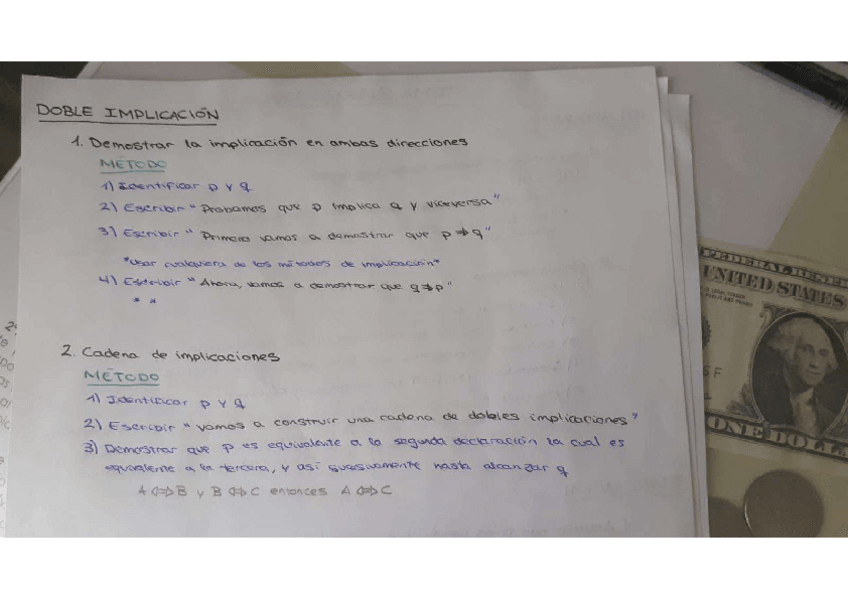 DOBLE IMPLICACIÓN
1. Demostrar la implicación en ambas direcciones
MÉTODO
1) Identificar p y q
2) Escribir "Probamos que p implica q y viceversa"
3) Escribir "Primero vamos a demostrar que p ⇒ q"
*Usar cualquiera de los métodos de implicación*
4) Escribir "Ahora, vamos a demostrar que q ⇒ p"
* *
2. Cadena de implicaciones
MÉTODO
1) Identificar p y q
2) Escribir "vamos a construir una cadena de dobles implicaciones"
3) Demostrar que p es equivalente a la segunda declaración la cual es
equivalente a la tercera, y así sucesivamente hasta alcanzar q
A ⇔ B y B ⇔ C entonces A ⇔ C
FEDERAL RESERVE
UNITED STATES
6 F
ONE DOLLA